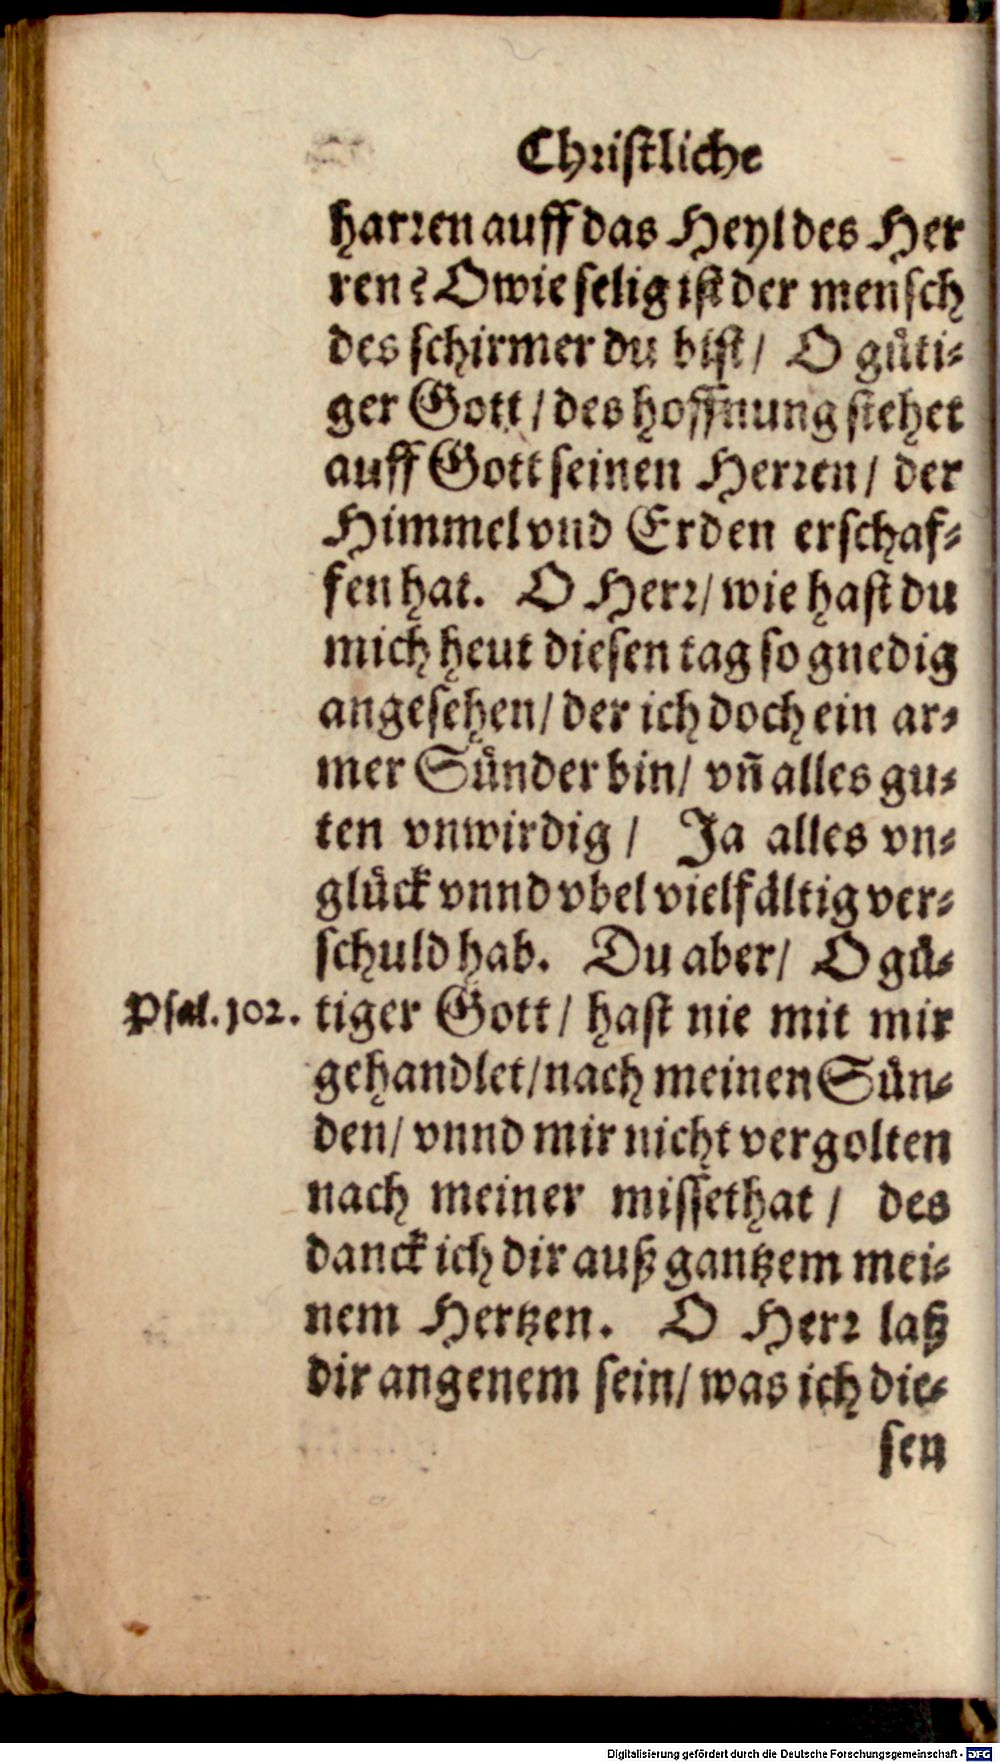 Christliche
harren auff das Heyl des Her
ren? O wie selig ist der mensch
des schirmer du bist / O gůti-
ger Gott / des hoffnung stehet
auff Gott seinen Herren / der
Himmel vnd Erden erschaf-
fen hat. O Herr / wie hast du
mich heut diesen tag so gnedig
angesehen / der ich doch ein ar-
mer Sůnder bin / vñ alles gu-
ten vnwirdig / Ja alles vn-
glůck vnnd vbel vielfåltig ver-
schuld hab. Du aber / O gů-
Psal. 102. tiger Gott / hast nie mit mir
gehandlet / nach meinen Sůn-
den / vnnd mir nicht vergolten
nach meiner missethat / des
danck ich dir auß gantzem mei-
nem Hertzen. O Herr laß
dir angenem sein / was ich die-
sen
Digitalisierung gefördert durch die Deutsche Forschungsgemeinschaft - DFG